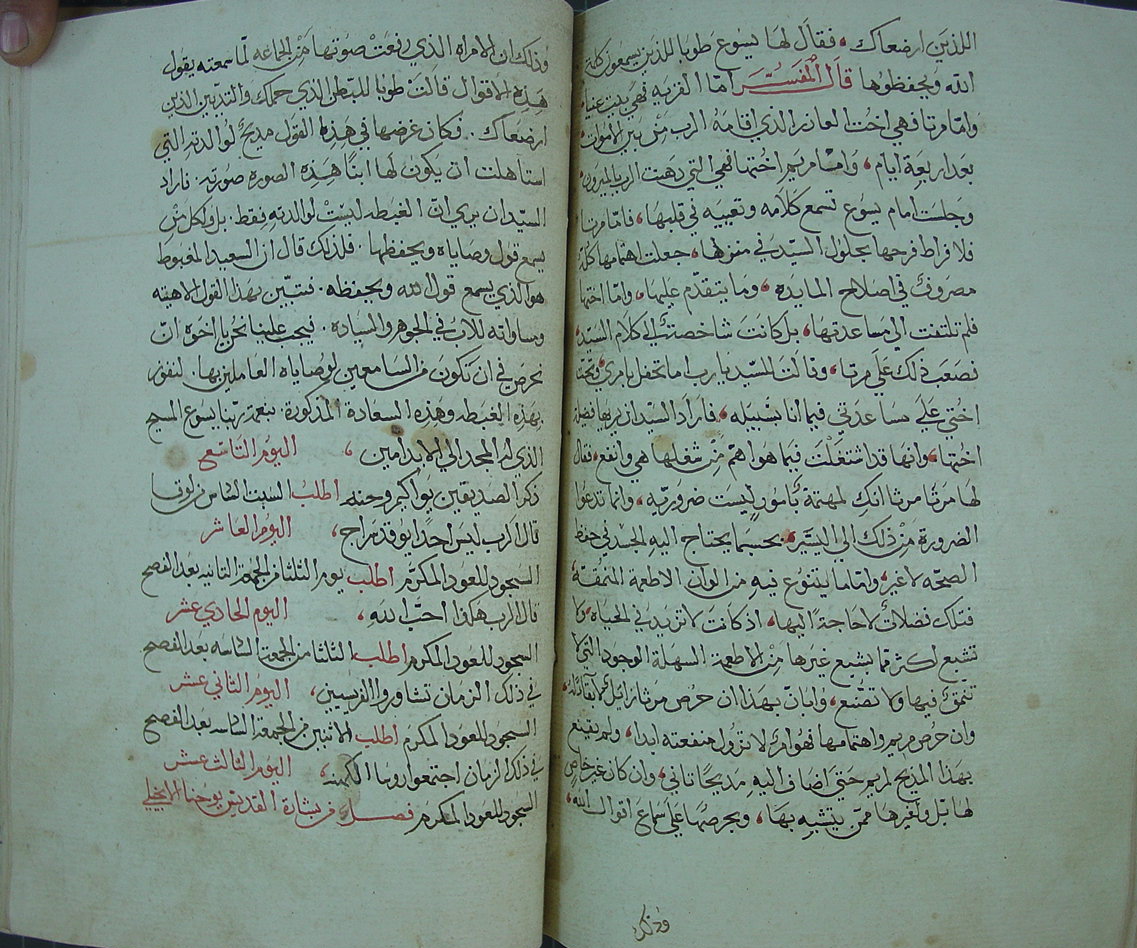 اللذين ارضعاك، فقال لها يسوع طوبا للذين يسمعون كلمة
الله ويحفظوها قال المفسر اما القريه فهي بيت عنيا،
واما مرتا فهي اخت العازر الذي اقامه الرب من بين الاموات
بعد اربعة ايام، واما مريم اختها فهي التي دهنت الرب بالميرون،
وجلست امام يسوع تسمع كلامه وتعييه في قلبها، فاما مرتا
فلافراط فرحها بحلول السيد في منزلها، جعلت اهتمامها كله
مصروف في اصلاح المايده، وما يتقدم عليها، واما اختها
فلم تلتفت الي مساعدتها، بل كانت شاخصة الي كلام السيد،
فصعب ذلك علي مرتا، وقالت للسيد يا رب اما تحفل بامري وتحث
اختي علي مساعدتي فيما انا بسبيله، فاراد السيد ان يريها فضل
اختها، وانها قد اشتغلت فيما هو اهم من شغلها هي وانفع، فقال
لها مرتا مرتا انك لمهتمة بامور ليست ضروريه، وانما تدعوا
الضرورة من ذلك الي اليسير، بحسبما يحتاج اليه الجسد في حفظ
الصحه لا غير، واما ما يتنوع فيه من الوان الاطعمة المنمقة،
فتلك فضلات لا حاجة اليها، اذ كانت لا تزيد في الحياه، ولا
تشبع اكثر مما يشبع غيرها من الاطعمة السهلة الوجود التي لا
تنمق فيها ولا تصنع، وابان بهذا ان حرص مرتا زايل
وان حرص مريم واهتمامها فهو امر لا تزول منفعته ابدا، ولم يقنع
بهذا المديح لمريم حتي اضاف اليه مديحا تاني، وان كان غير خاص
لها بل ولغيرها ممن يتشبه بها، ويحرصها علي سماع اقوال الله،
وذلك
وذلك ان الامراه الذي رفعت صوتها من الجماعه لما سمعته يقول
هذه الاقوال قالت طوبا للبطن الذي حملك والثديين الذين
ارضعاك. وكان غرضها في هذا القول مديح لوالدته التي
استاهلت ان يكون لها ابنا هذه الصوره صورته. فاراد
السيد ان يري ان الغبطه ليست لوالدته فقط. بل ولكل من
يسمع قول وصاياه ويحفظها. فلذلك قال ان السعيد المغبوط
هو الذي يسمع قول الله ويحفظه. فتبين بهذا القول الاهيته
ومساواته للاب في الجوهر والسياده. فيجب علينا نحن يا اخوه ان
نحرص في ان نكون من السامعين لوصاياه العاملين بها. لنفوز
بهذه الغبطه وهذه السعادة المذكورة. بنعمة ربنا يسوع المسيح
الذي له المجد الي الابد امين، اليوم التاسع
ذكر الصديقين يواكيم وحنه اطلب السبت الثامن من لوقا
قال الرب ليس احدا يوقد سراج، اليوم العاشر
السجود للعود المكرم اطلب يوم الثلثا في الجمعة الثانيه بعد الفصح
قال الرب هكذا احب الله، اليوم الحادي عشر
السجود للعود المكرم اطلب الثلثا من الجمعة السادسه بعد الفصح
في ذلك الزمان تشاوروا الفريسيين، اليوم الثاني عشر
السجود للعود المكرم اطلب الاثنين من الجمعة السادسه بعد الفصح
في ذلك الزمان اجتمعوا روسا الكهنه، اليوم الثالث عشر
السجود للعود المكرم فصل من بشارة القديس يوحنا الانجيلي